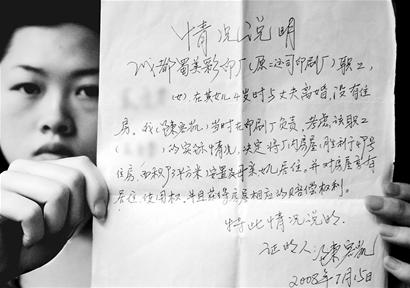 情况说明
成都蜀美彩印厂(原二还可印刷厂)职工,
(女),在其女儿4岁时与丈夫离婚,没有住
易。我(陈)当时在印刷厂负责,考虑该职工
( )的实际情况,决定将厂内房屋,胜利村47号
住房,面积 平方米 安置及母亲女儿居住。并对房屋享有
居住、使用权,并且获得房屋相应的赔偿权利。
特此情况说明。
证明人:
2008年7月15日